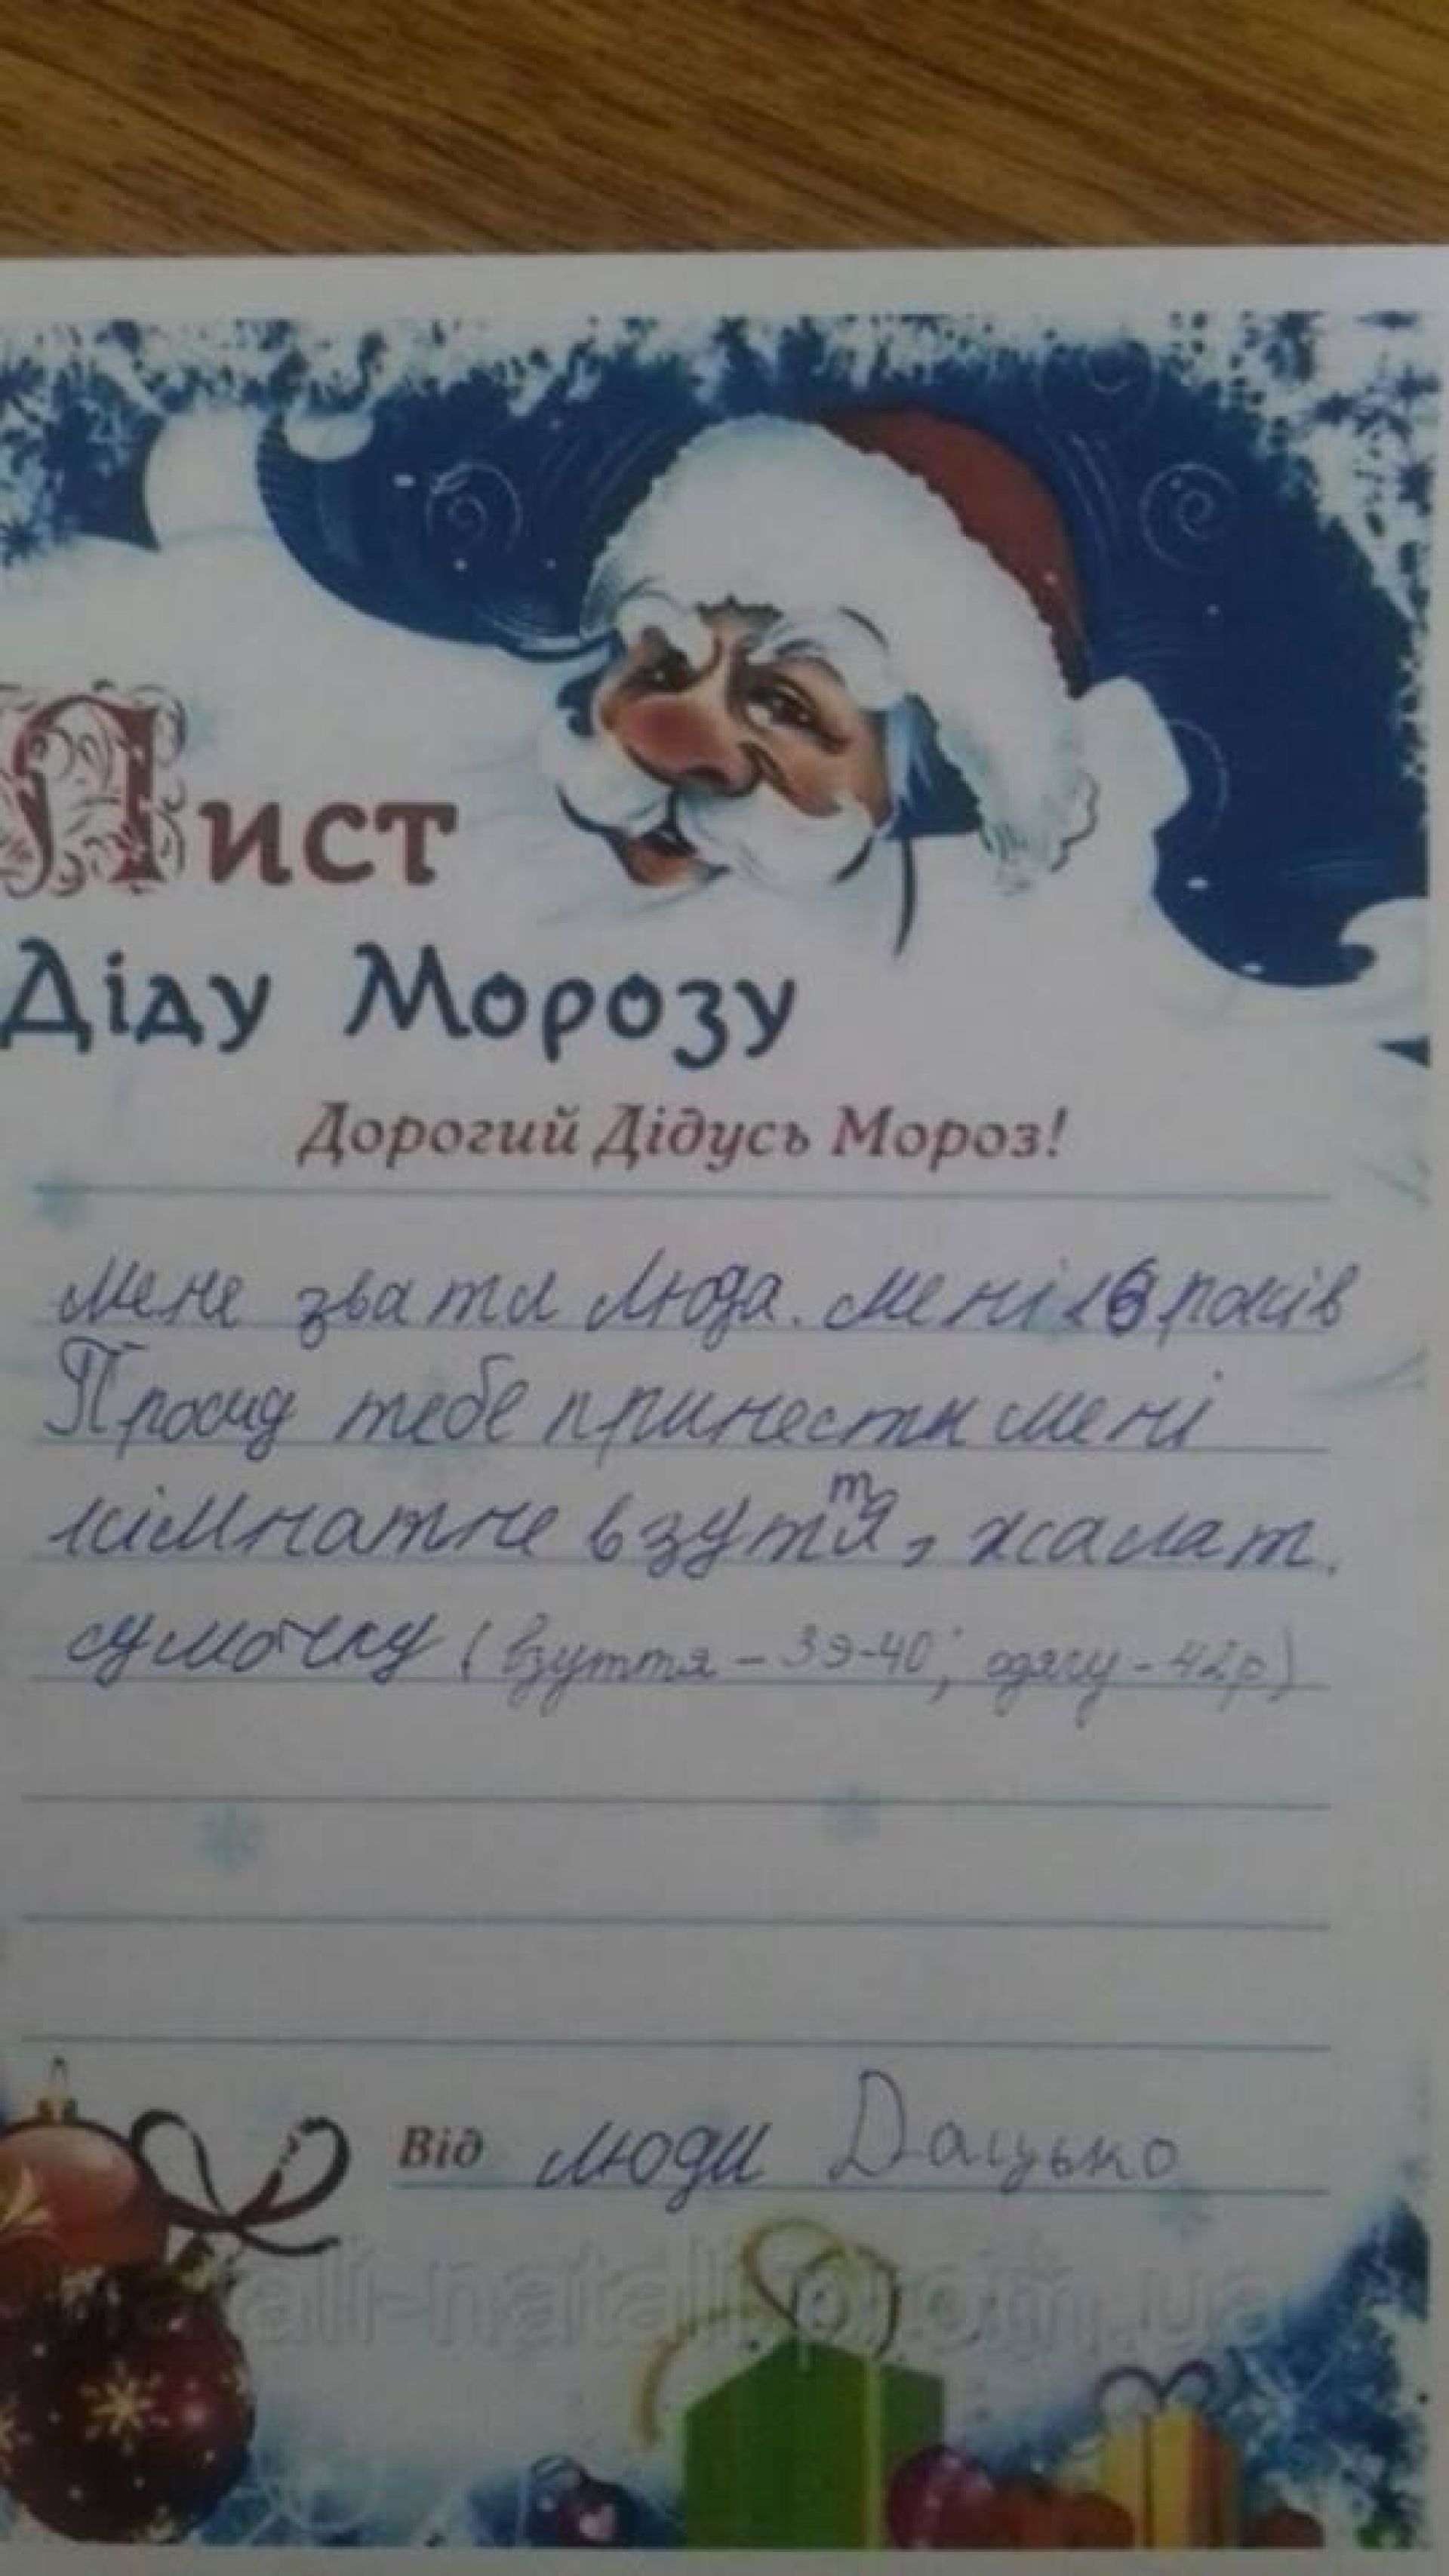 Лист
Діду Морозу
Дорогий Дідусь Мороз!
мене звати Люда. мені 16 років
Прошу тебе принести мені
кімнатне взуття, халат.
сумочку (взуття - 39-40; одягу - 42р)
Від Люди Дацько
ali-natali.prom.ua